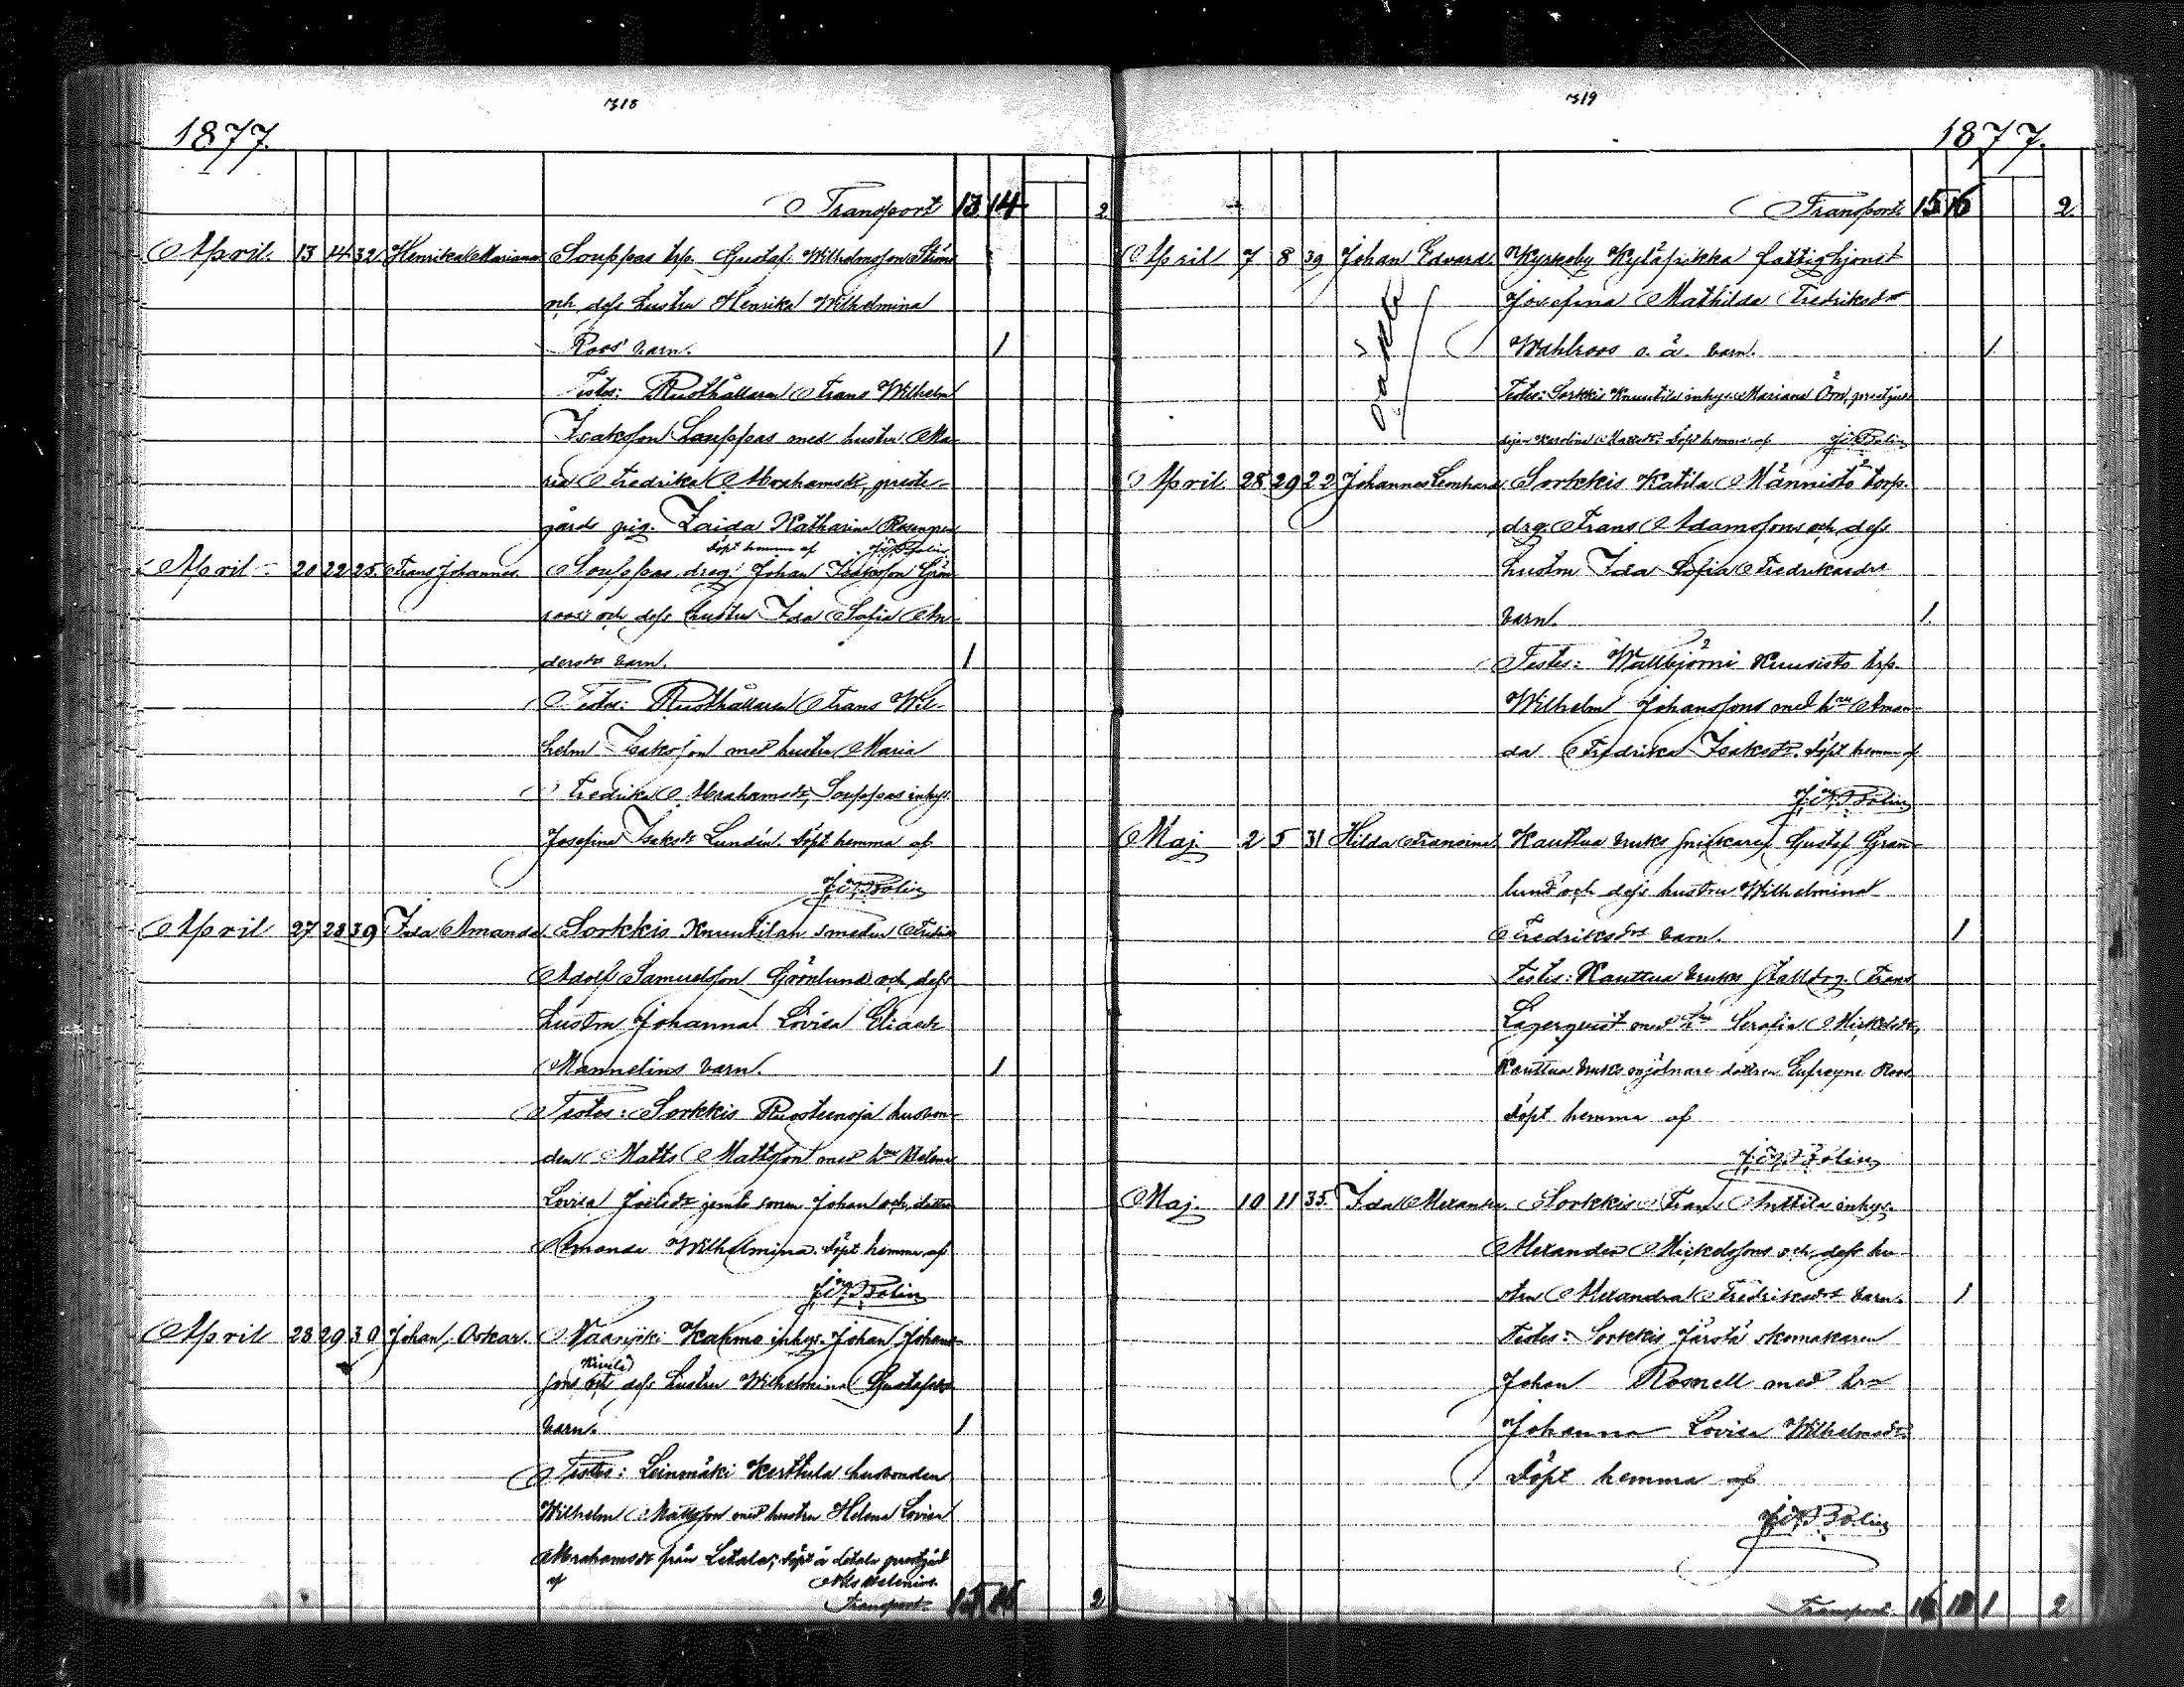 318
1877.
Transport 13 14 2
April. 13 14 32. Henrika Mariana Souppas trp. Gustaf Wilhelmsson
och dess hustru Henrika Wilhelmina
Roos' barn. 1
Testes: Rusthållaren Frans Wilhelm
Isaksson Souppas med hustru Ma-
ria Fredrika Abrahamsdr, preste-
gårds pig. Zaida Katharina Rosengren
döpt hemma af
April 20 22 25. Frans Johannes. Souppas dreg. Johan Isaksson Grön
roos och dess hustru Ida Sofia An-
dersdrs barn. 1
Testes: Rusthållaren Frans Wil-
helm Isaksson med hustru Maria
Fredrika Abrahamsdr, Souppas inhys.
Josefina Isaksdr Lundén. döpt hemma af
April 27 28 39 Ida Amanda. Sorkkis Knuutilan smeden
Adolf Samuelsson Görnlund och dess
hustru Johanna Lovisa Eliasdr
Mannelins barn. 1
Testes: Sorkkis Ruosteenoja husbon-
den Matts Mattsson med hru Helena
Lovisa Joelsdr jemte sonen Johan och dottren
Amanda Wilhelmina. döpt hemma af
April 28 29 30 Johan Oskar. Naarijoki Kahma inhys. Johan Johans-
sons och dess hustru Wilhelmina Gustafsdrs
barn. 1
Testes: Leinmäki Kerttula husbonden
Wilhelm Mattsson med hustru Helena Lovisa
Abrahamsdr från Letala; döpt å Letala prestgård
af
Transport. 15 16 2
319
1877.
Transport. 15 16 2
April 7 8 39 Johan Edvard. Kyrkoby Kyläpirkka fattighjonet
oäkta Josefina Mathilda Fredriksdr
Wahlroos o. ä. barn. 1.
Testes: Sorkkis Knuutila inhys. Mariana Örn,
Karolina döpt hemma af
April 28 29 22 Johannes Leonhard. Sorkkis Katila Männistö torp.
drg. Frans Adamssons och dess
hustru Ida Sofia Fredriksdrs
barn. 1.
Testes: Kuusisto trp.
Wilhelm Johanssons med hru Aman-
da Fredrika Isaksdr. döpt hemma af
Maj. 2 5 31 Hilda Fransina. Kauttua bruks snickaren Gustaf Gran-
lund och dess hustru Wilhelmina
Fredriksdrs barn. 1
Testes: Kauttua bruks stalldrg. Frans
Lagerqvist med hru Serafia Mickelsdr,
Kauttua bruks mjölnare dottren Eufrosyne Roos
döpt hemma af
Maj. 10 11 35. Ida Alexandra. Sorkkis Frans Anttila inhys.
Alexander Mickelssons och dess hu-
stru Alexandra Fredriksdrs barn. 1
Testes: Sorkkis Järstä skomakaren
Johan Rosnell med hru
Johanna Lovisa Wilhelmsdr.
döpt hemma af
Transport. 16 18 1 2